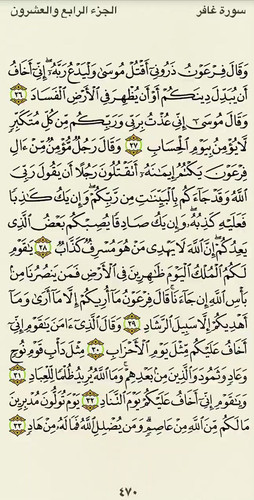 سورة غافر
الجزء الرابع والعشرون
وَقَالَ فِرْعَوْنُ ذَرُونِىٓ أَقْتُلْ مُوسَىٰ وَلْيَدْعُ رَبَّهُۥٓ ۖ إِنِّىٓ أَخَافُ
أَن يُبَدِّلَ دِينَكُمْ أَوْ أَن يُظْهِرَ فِى ٱلْأَرْضِ ٱلْفَسَادَ ٢٦
وَقَالَ مُوسَىٰٓ إِنِّى عُذْتُ بِرَبِّى وَرَبِّكُم مِّن كُلِّ مُتَكَبِّرٍ
لَّا يُؤْمِنُ بِيَوْمِ ٱلْحِسَابِ ٢٧ وَقَالَ رَجُلٌ مُّؤْمِنٌ مِّنْ ءَالِ
فِرْعَوْنَ يَكْتُمُ إِيمَٰنَهُۥٓ أَتَقْتُلُونَ رَجُلًا أَن يَقُولَ رَبِّىَ
ٱللَّهُ وَقَدْ جَآءَكُم بِٱلْبَيِّنَٰتِ مِن رَّبِّكُمْ ۖ وَإِن يَكُ كَٰذِبًا
فَعَلَيْهِ كَذِبُهُۥ ۖ وَإِن يَكُ صَادِقًا يُصِبْكُم بَعْضُ ٱلَّذِى
يَعِدُكُمْ ۖ إِنَّ ٱللَّهَ لَا يَهْدِى مَنْ هُوَ مُسْرِفٌ كَذَّابٌ ٢٨ يَٰقَوْمِ
لَكُمُ ٱلْمُلْكُ ٱلْيَوْمَ ظَٰهِرِينَ فِى ٱلْأَرْضِ فَمَن يَنصُرُنَا مِنۢ
بَأْسِ ٱللَّهِ إِن جَآءَنَا ۚ قَالَ فِرْعَوْنُ مَآ أُرِيكُمْ إِلَّا مَآ أَرَىٰ وَمَآ
أَهْدِيكُمْ إِلَّا سَبِيلَ ٱلرَّشَادِ ٢٩ وَقَالَ ٱلَّذِىٓ ءَامَنَ يَٰقَوْمِ إِنِّىٓ
أَخَافُ عَلَيْكُم مِّثْلَ يَوْمِ ٱلْأَحْزَابِ ٣٠ مِثْلَ دَأْبِ قَوْمِ نُوحٍ
وَعَادٍ وَثَمُودَ وَٱلَّذِينَ مِنۢ بَعْدِهِمْ ۚ وَمَا ٱللَّهُ يُرِيدُ ظُلْمًا لِّلْعِبَادِ ٣١
وَيَٰقَوْمِ إِنِّىٓ أَخَافُ عَلَيْكُمْ يَوْمَ ٱلتَّنَادِ ٣٢ يَوْمَ تُوَلُّونَ مُدْبِرِينَ
مَا لَكُم مِّنَ ٱللَّهِ مِنْ عَاصِمٍ ۗ وَمَن يُضْلِلِ ٱللَّهُ فَمَا لَهُۥ مِنْ هَادٍ ٣٣
٤٧٠